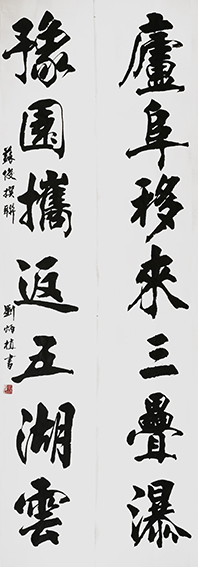 廬阜移來三疊瀑
豫園攜返五湖雲
蘇俊撰聯
劉炳植書